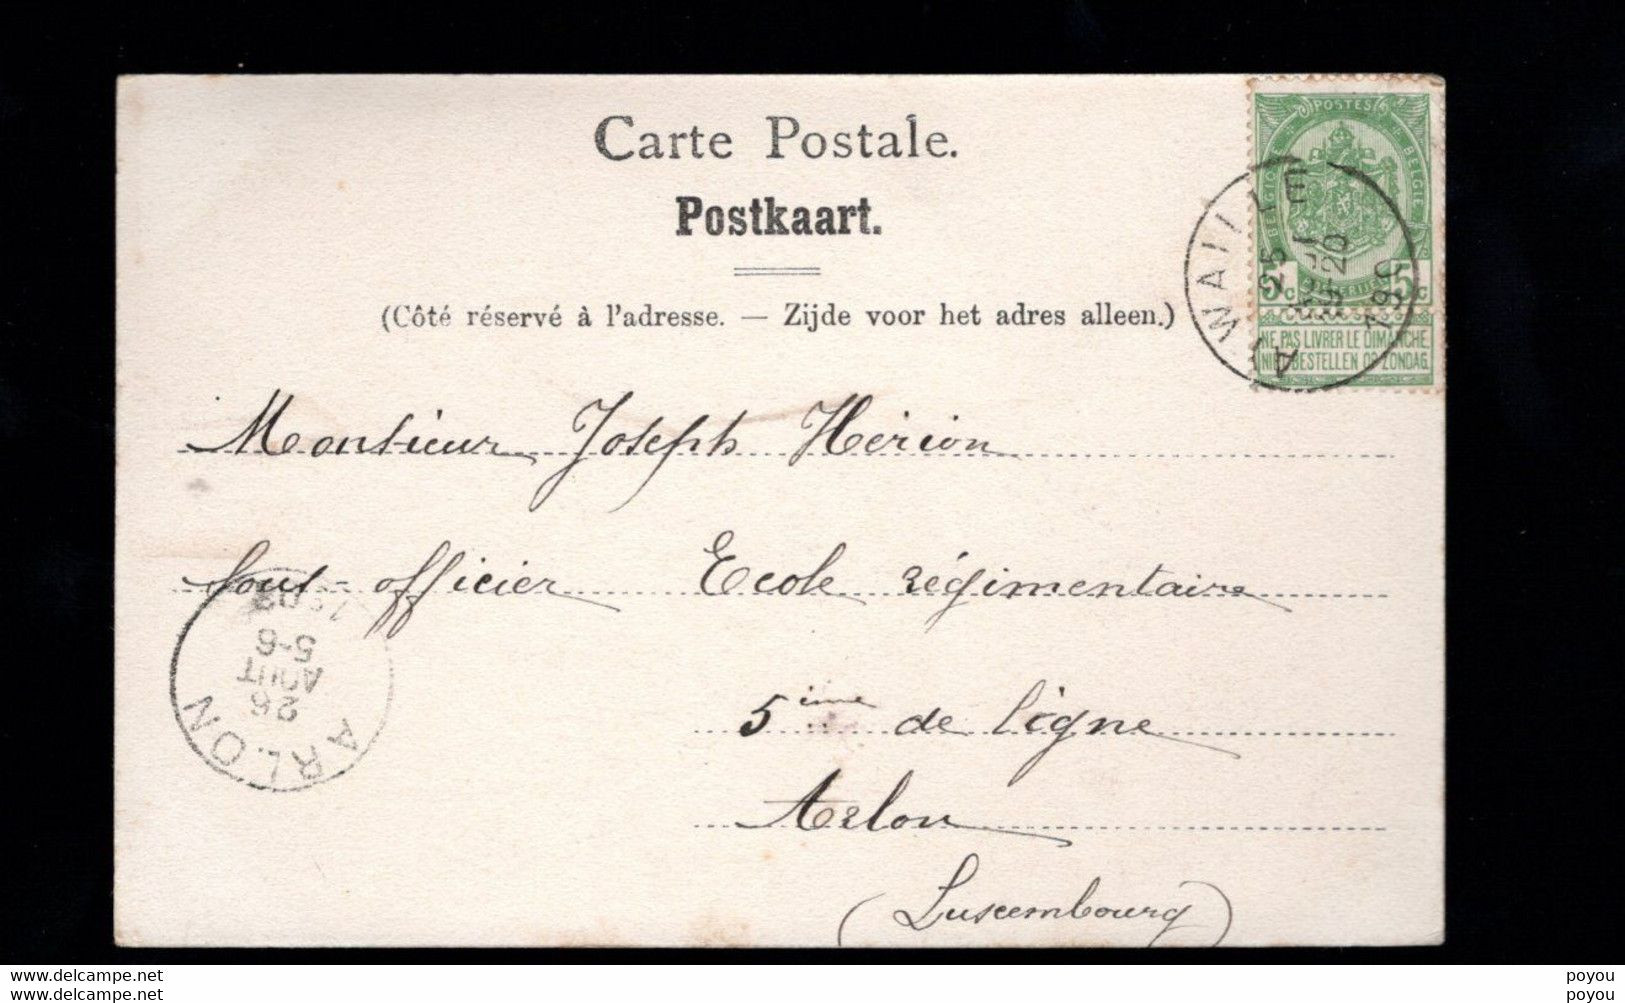 Carte Postale.
Postkaart.
(Côté réservé à l'adresse. — Zijde voor het adres alleen.)
POSTES
BELGIQUE BELGIE
5 c 5 c
NE PAS LIVRER LE DIMANCHE
NIET BESTELLEN OP ZONDAG
AYWAILLE
25
Monsieur Joseph Hérion
sous-officier Ecole régimentaire
5ième de ligne
Arlon
(Luxembourg)
ARLON
26
AOUT
5-6
delcampe.net
poyou
delcampe.net
poyou